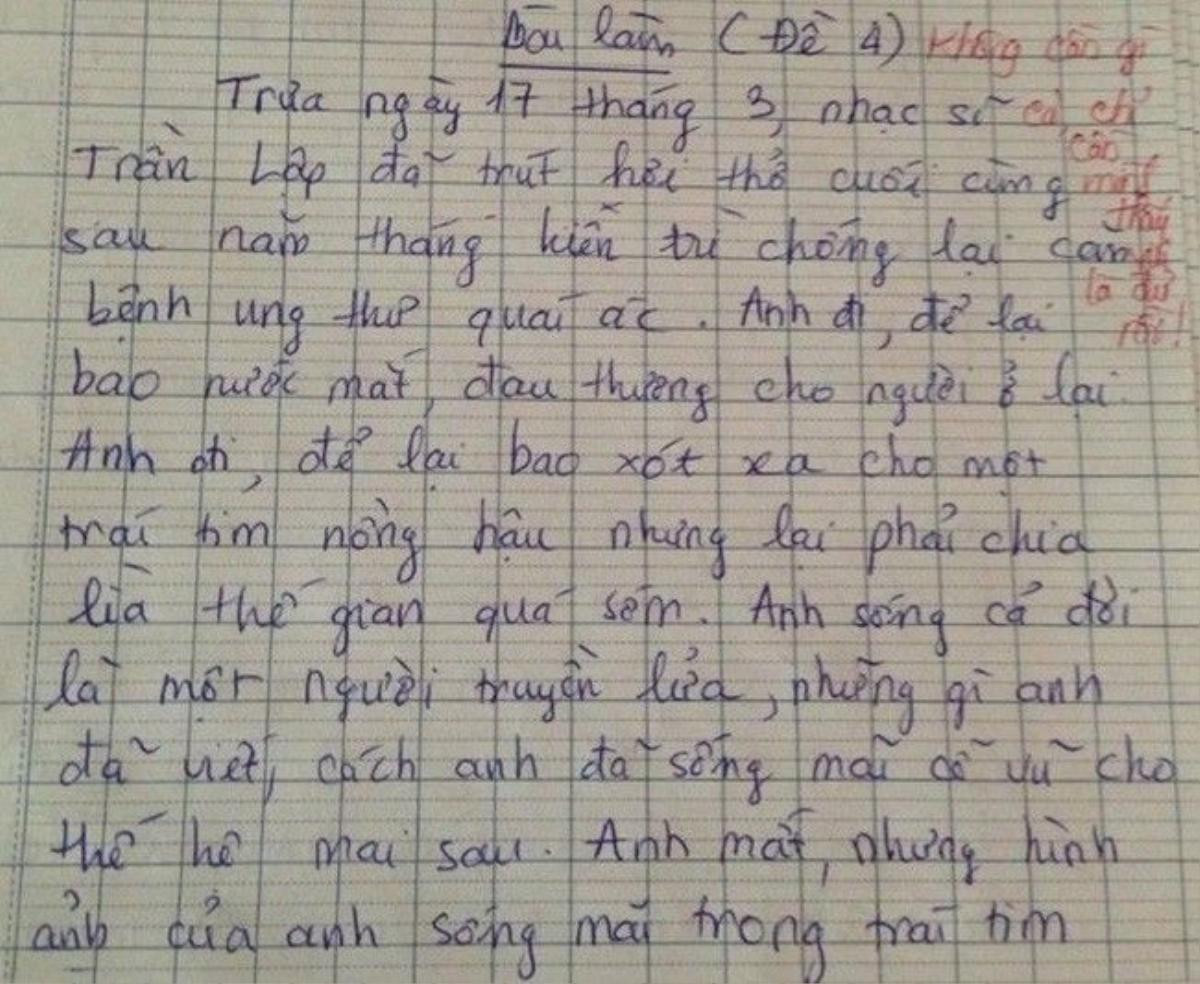 Bài làm (Đề 4)
Trưa ngày 17 tháng 3, nhạc sĩ
Trần Lập đã trút hơi thở cuối cùng
sau năm tháng kiên trì chống lại căn
bệnh ung thư quái ác. Anh đi, để lại
bao nước mắt, đau thương cho người ở lại.
Anh đi, để lại bao xót xa cho một
trái tim nồng hậu nhưng lại phải chia
lìa thế gian quá sớm. Anh sống cả đời
là một người truyền lửa, những gì anh
đã viết, cách anh đã sống mãi cổ vũ cho
thế hệ mai sau. Anh mất, nhưng hình
ảnh của anh sống mãi trong trái tim
Không cần gì
cả chỉ
cần
một
là đủ
rồi!